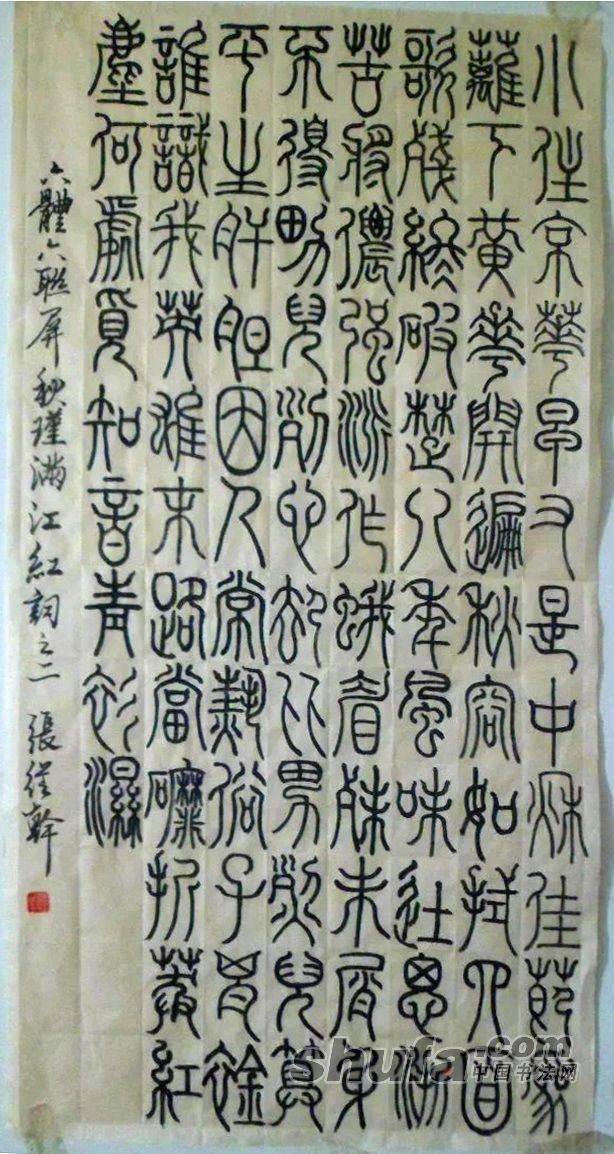 小住京華早又是中秋佳節為
籬下黃花開遍秋容如拭四面
歌殘終破楚八年風味徒思浙
苦將儂强派作蛾眉殊未屑身
不得男兒列心卻比男烈兒算
平生肝胆因人常熱俗子胸襟
誰識我英雄末路當磨折莽紅
塵何處覓知音青衫濕
六體六聯屏 秋瑾滿江紅詞之二 張從幹
shufa.com
中国书法网